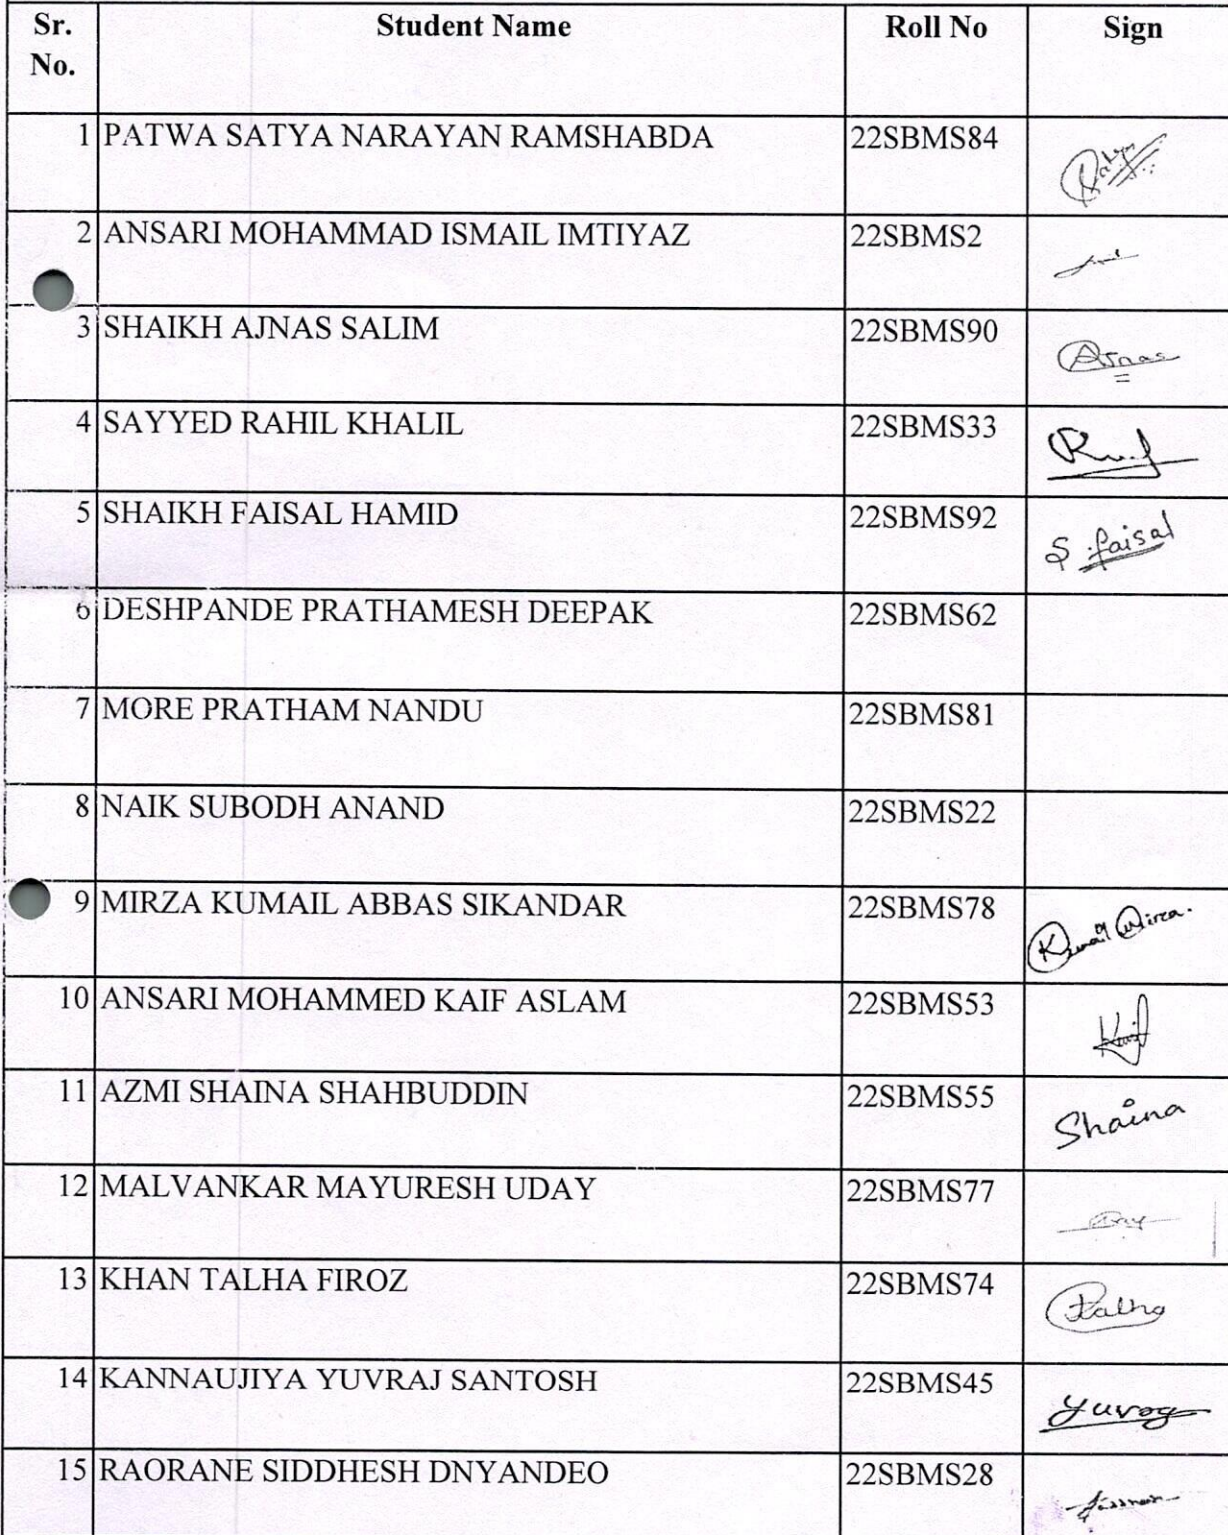 Sr. No. Student Name Roll No Sign
1 PATWA SATYA NARAYAN RAMSHABDA 22SBMS84
2 ANSARI MOHAMMAD ISMAIL IMTIYAZ 22SBMS2
3 SHAIKH AJNAS SALIM 22SBMS90 Ajnas
4 SAYYED RAHIL KHALIL 22SBMS33
5 SHAIKH FAISAL HAMID 22SBMS92 S. faisal
6 DESHPANDE PRATHAMESH DEEPAK 22SBMS62
7 MORE PRATHAM NANDU 22SBMS81
8 NAIK SUBODH ANAND 22SBMS22
9 MIRZA KUMAIL ABBAS SIKANDAR 22SBMS78 Kumail Mirza.
10 ANSARI MOHAMMED KAIF ASLAM 22SBMS53 Kaif
11 AZMI SHAINA SHAHBUDDIN 22SBMS55 Shaina
12 MALVANKAR MAYURESH UDAY 22SBMS77
13 KHAN TALHA FIROZ 22SBMS74 Talha
14 KANNAUJIYA YUVRAJ SANTOSH 22SBMS45 Yuvraj
15 RAORANE SIDDHESH DNYANDEO 22SBMS28